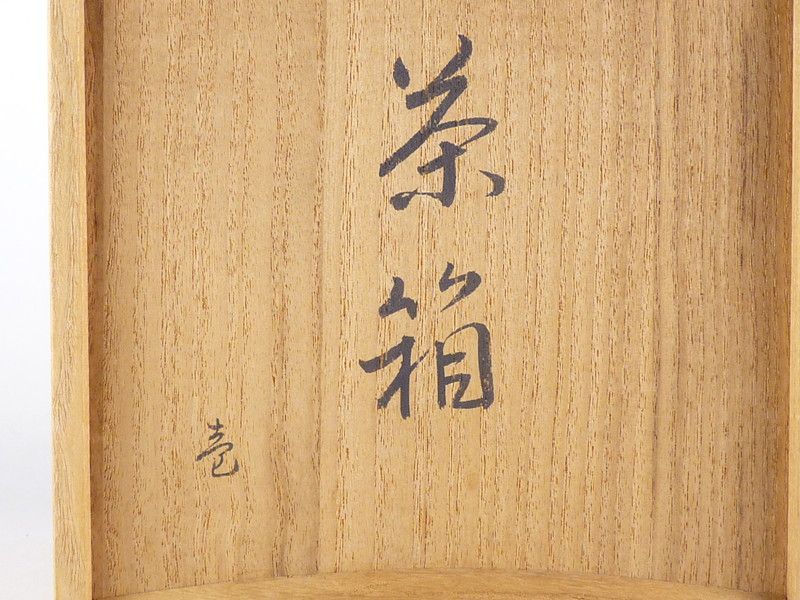 茶箱
壱